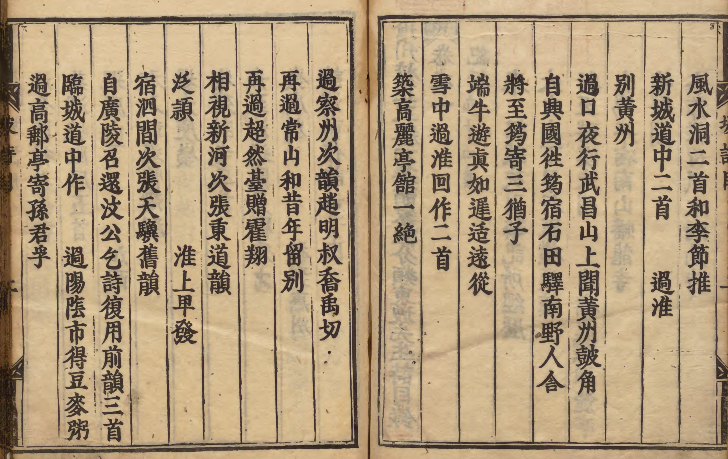 風水洞二首和李節推
新城道中二首　過淮
別黃州
過口夜行武昌山上聞黃州鼓角
自興國徃筠宿石田驛南野人舍
將至筠寄三猶子
端午遊真如遲适遠從
雪中過淮回作二首
築高麗亭館一絶
過密州次韻趙明叔喬禹切
再過常山和昔年留別
再過超然臺贈霍翔
相視新河次張東道韻
泛潁　淮上早發
宿泗間次張天驥舊韻
自廣陵召還汶公乞詩復用前韻三首
臨城道中作　過陽隂市得豆麥粥
過高郵亭寄孫君孚